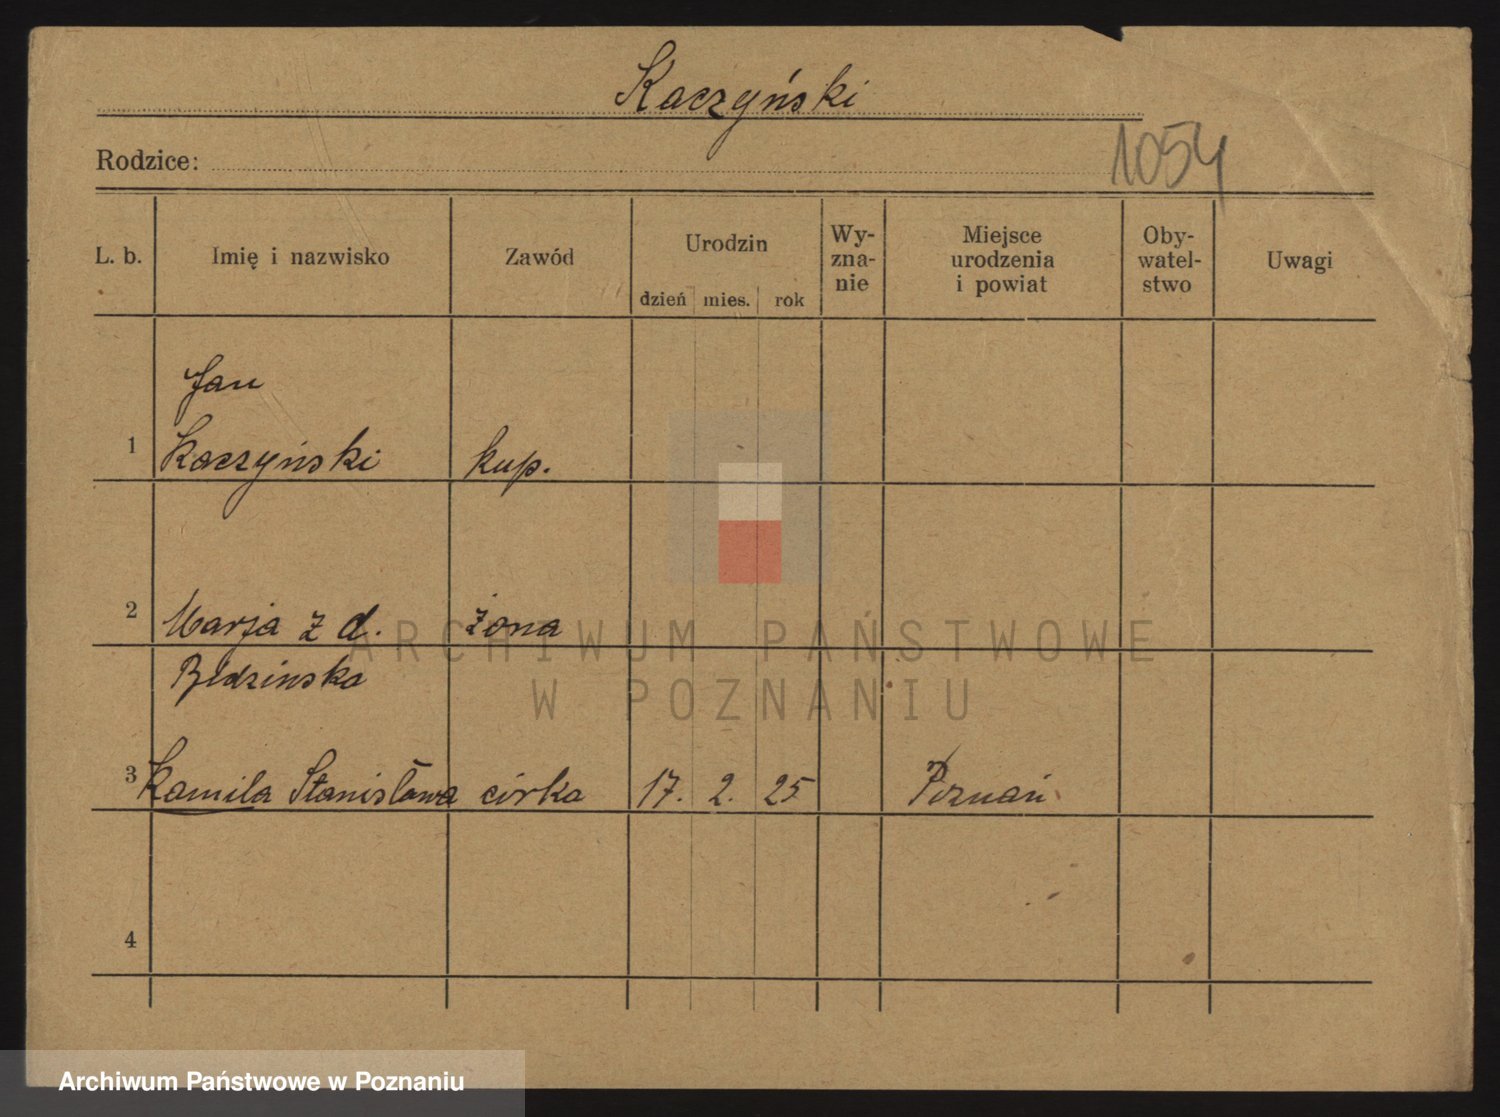 Kaczyński
Rodzice:
1054
L. b.
Imię i nazwisko
Zawód
Urodzin
dzień
mies.
rok
Wy-
zna-
nie
Miejsce
urodzenia
i powiat
Oby-
watel-
stwo
Uwagi
Jan
1 Kaczyński kup.
2 Marja z d. żona
3 Kamila Stanisława córka 17. 2. 25 Poznań
4
ARCHIWUM PAŃSTWOWE
W POZNANIU
Archiwum Państwowe w Poznaniu